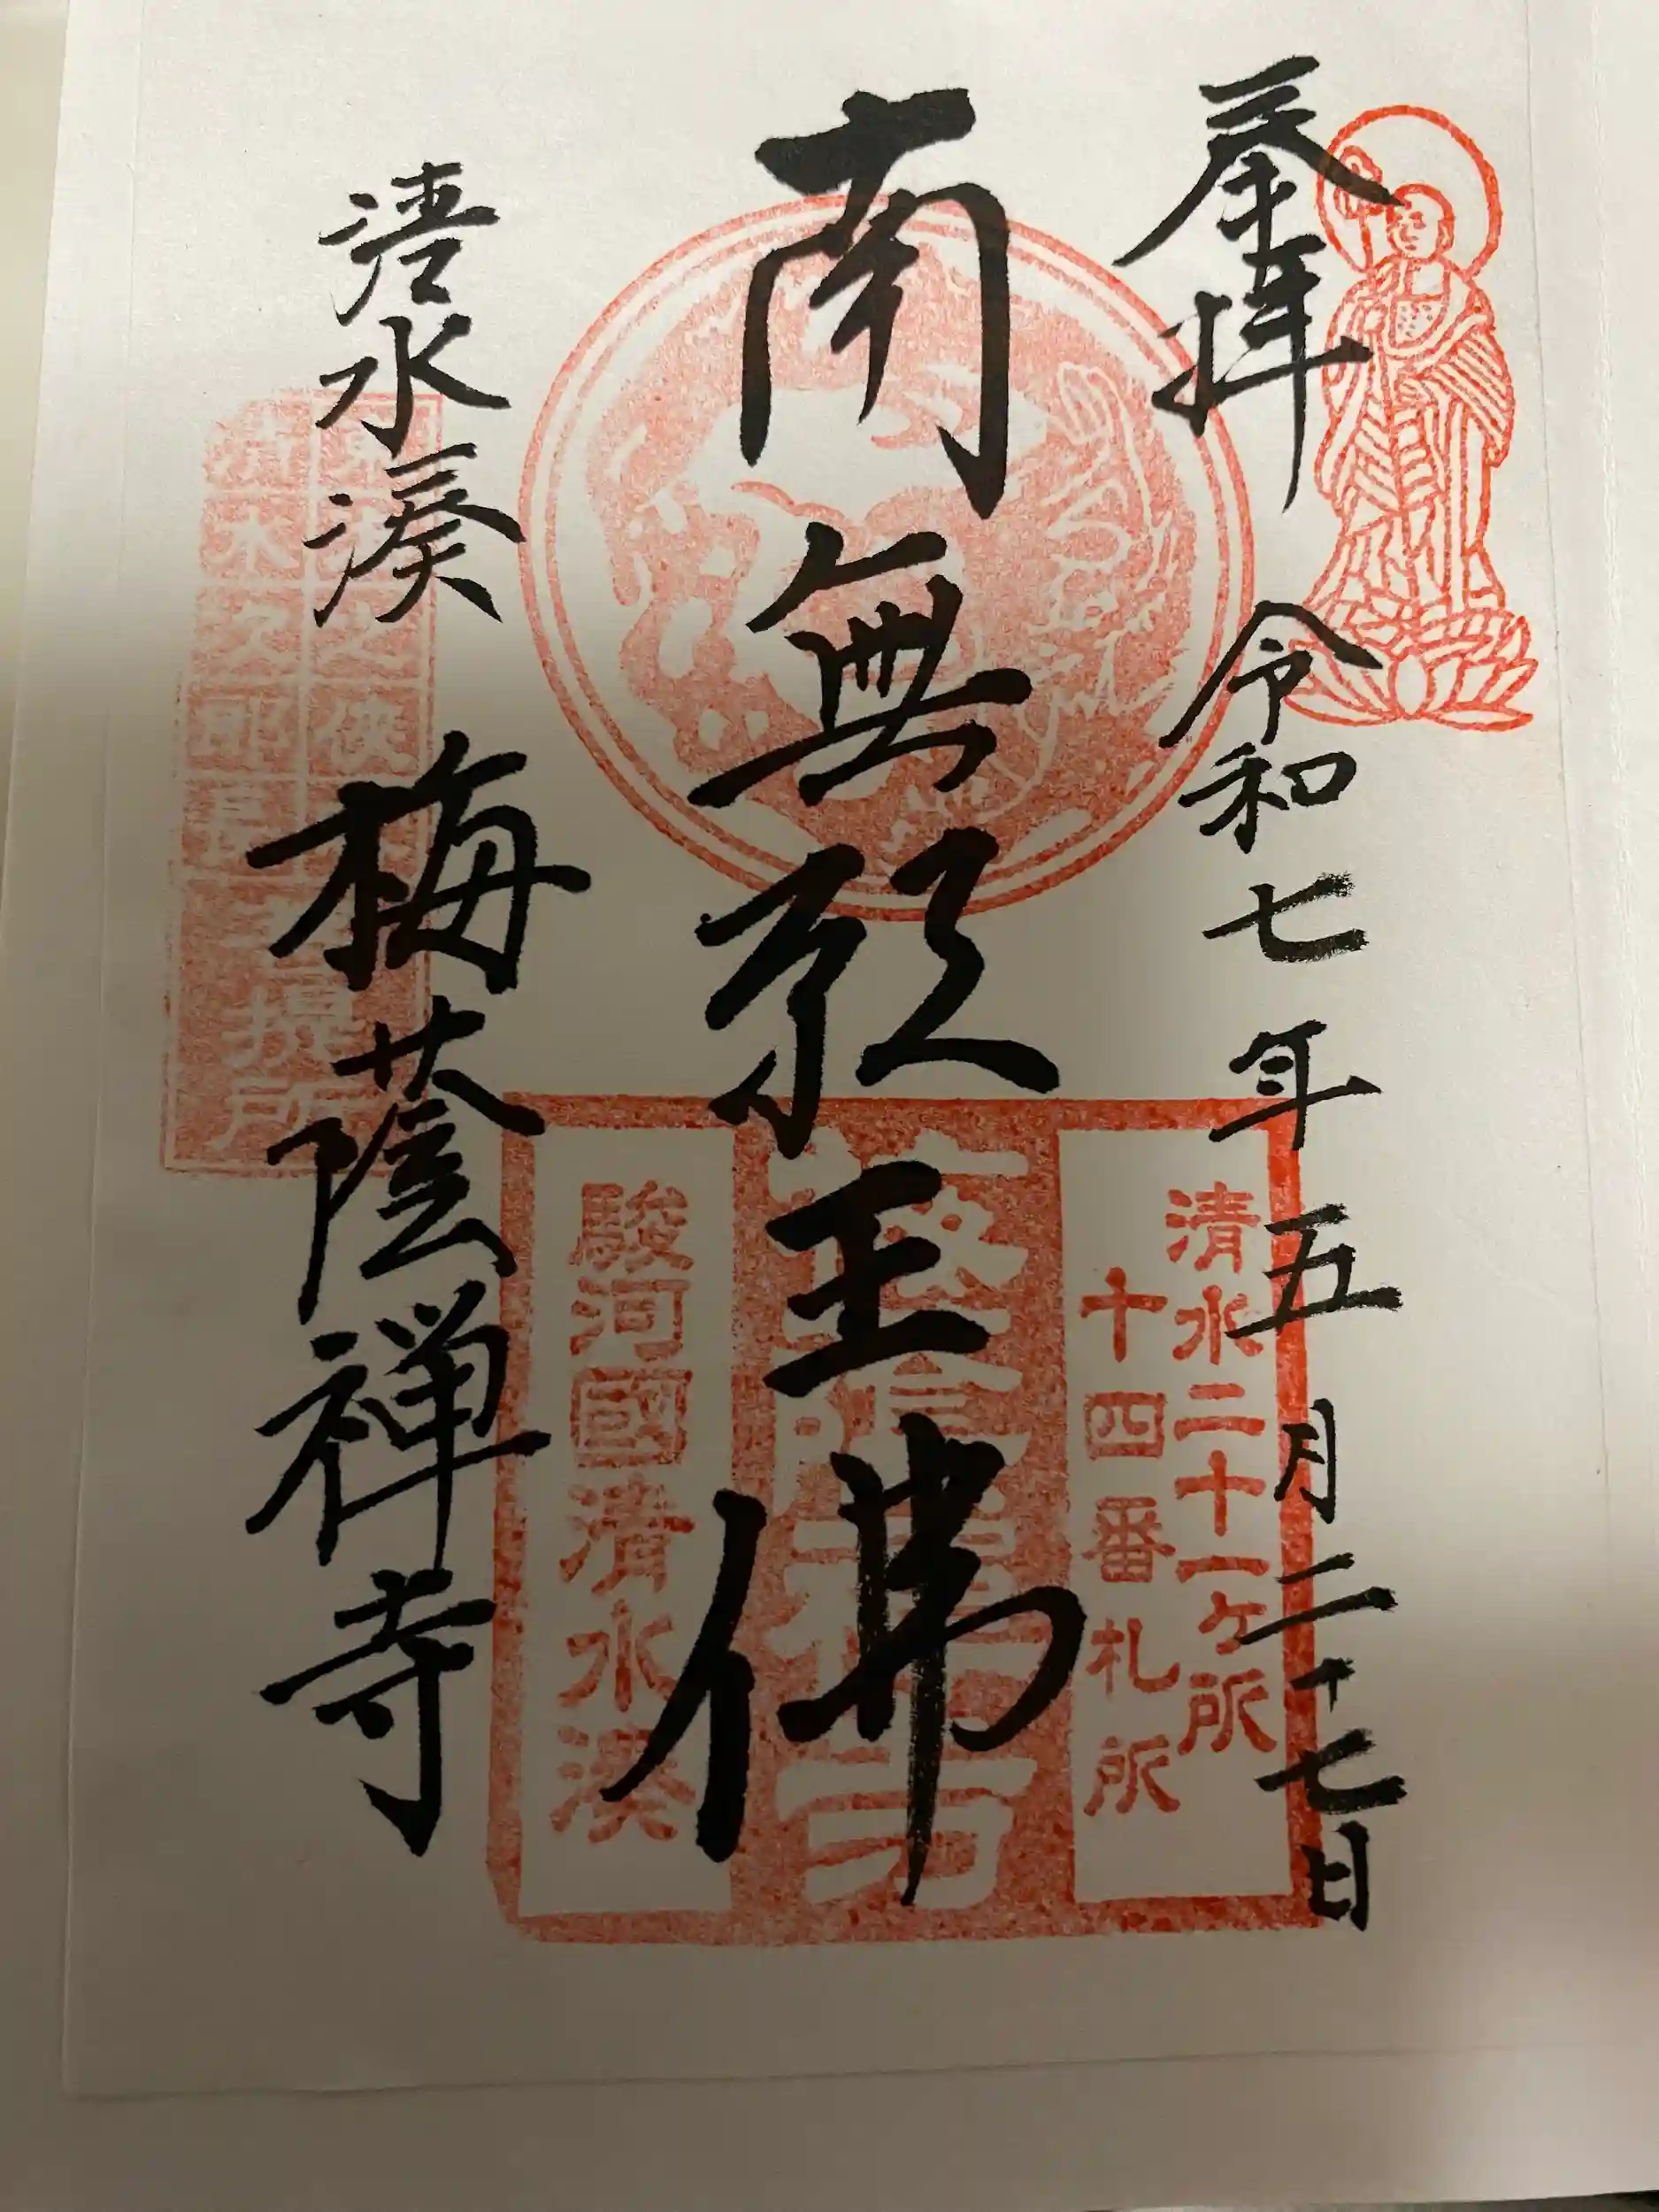 奉拝
令和七年五月二十七日
南無願王佛
清水湊
梅蔭禅寺
清水二十一ヶ所
十四番札所
駿河國清水湊